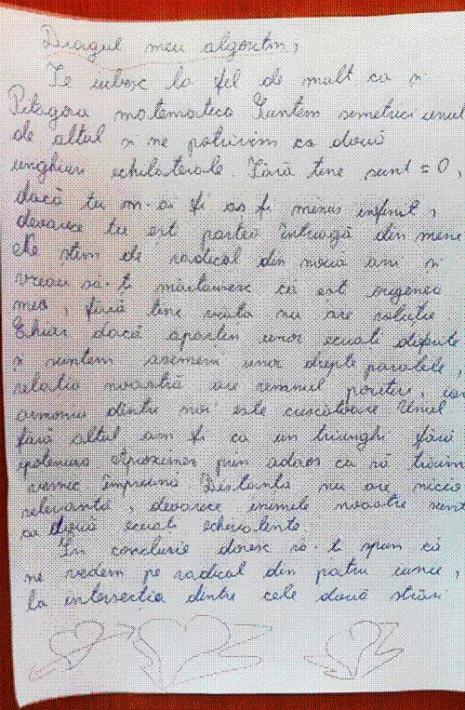 Dragul meu algoritm,
Te iubesc la fel de mult ca și
Pitagora matematica Suntem simetrici unul
de altul si ne potrivim ca două
unghiuri echilaterale. Fără tine sunt = 0,
dacă tu n-ai fi aș fi minus infinit,
deoarece tu ești partea întreagă din mine
Ne știm de radical din nouă ani și
vreau să-ți mărturisesc că ești
mea, fără tine viața nu are soluție.
Chiar dacă aparțin unor ecuații
și suntem asemeni unor drepte paralele,
relația noastră are semnul pozitiv, iar
armonia dintre noi este crescătoare Unul
fără altul am fi ca un triunghi fără
ipotenuza Aproximez prin adaos ca să trăim
veșnic împreună Distanța nu are nicio
relevanță, deoarece inimile noastre sunt
ca două ecuații echivalente.
În concluzie doresc să-ți spun că
ne vedem pe radical din patru iunie,
la intersecția dintre cele două străzi